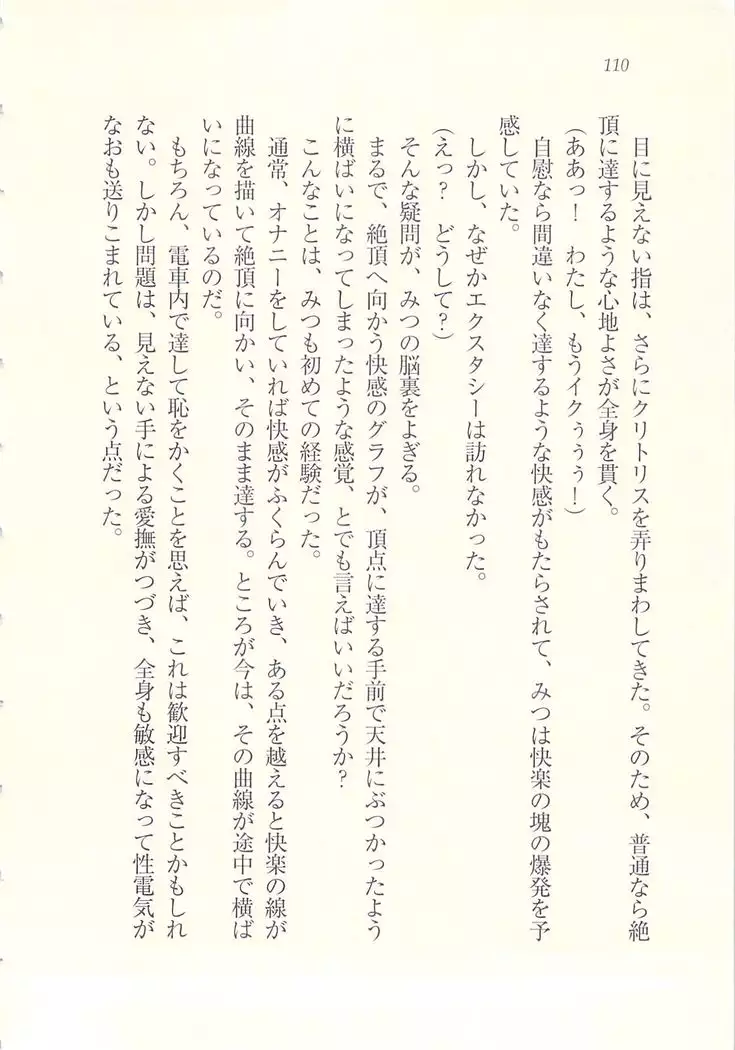 110
目に見えない指は、さらにクリトリスを弄りまわしてきた。そのため、普通なら絶
頂に達するような心地よさが全身を貫く。
(ああっ! わたし、もうイクぅぅぅ!)
自慰なら間違いなく達するような快感がもたらされて、みつは快楽の塊の爆発を予
感していた。
しかし、なぜかエクスタシーは訪れなかった。
(えっ? どうして?)
そんな疑問が、みつの脳裏をよぎる。
まるで、絶頂へ向かう快感のグラフが、頂点に達する手前で天井にぶつかったよう
に横ばいになってしまったような感覚、とでも言えばいいだろうか?
こんなことは、みつも初めての経験だった。
通常、オナニーをしていれば快感がふくらんでいき、ある点を越えると快楽の線が
曲線を描いて絶頂に向かい、そのまま達する。ところが今は、その曲線が途中で横ば
いになっているのだ。
もちろん、電車内で達して恥をかくことを思えば、これは歓迎すべきことかもしれ
ない。しかし問題は、見えない手による愛撫がつづき、全身も敏感になって性電気が
なおも送りこまれている、という点だった。